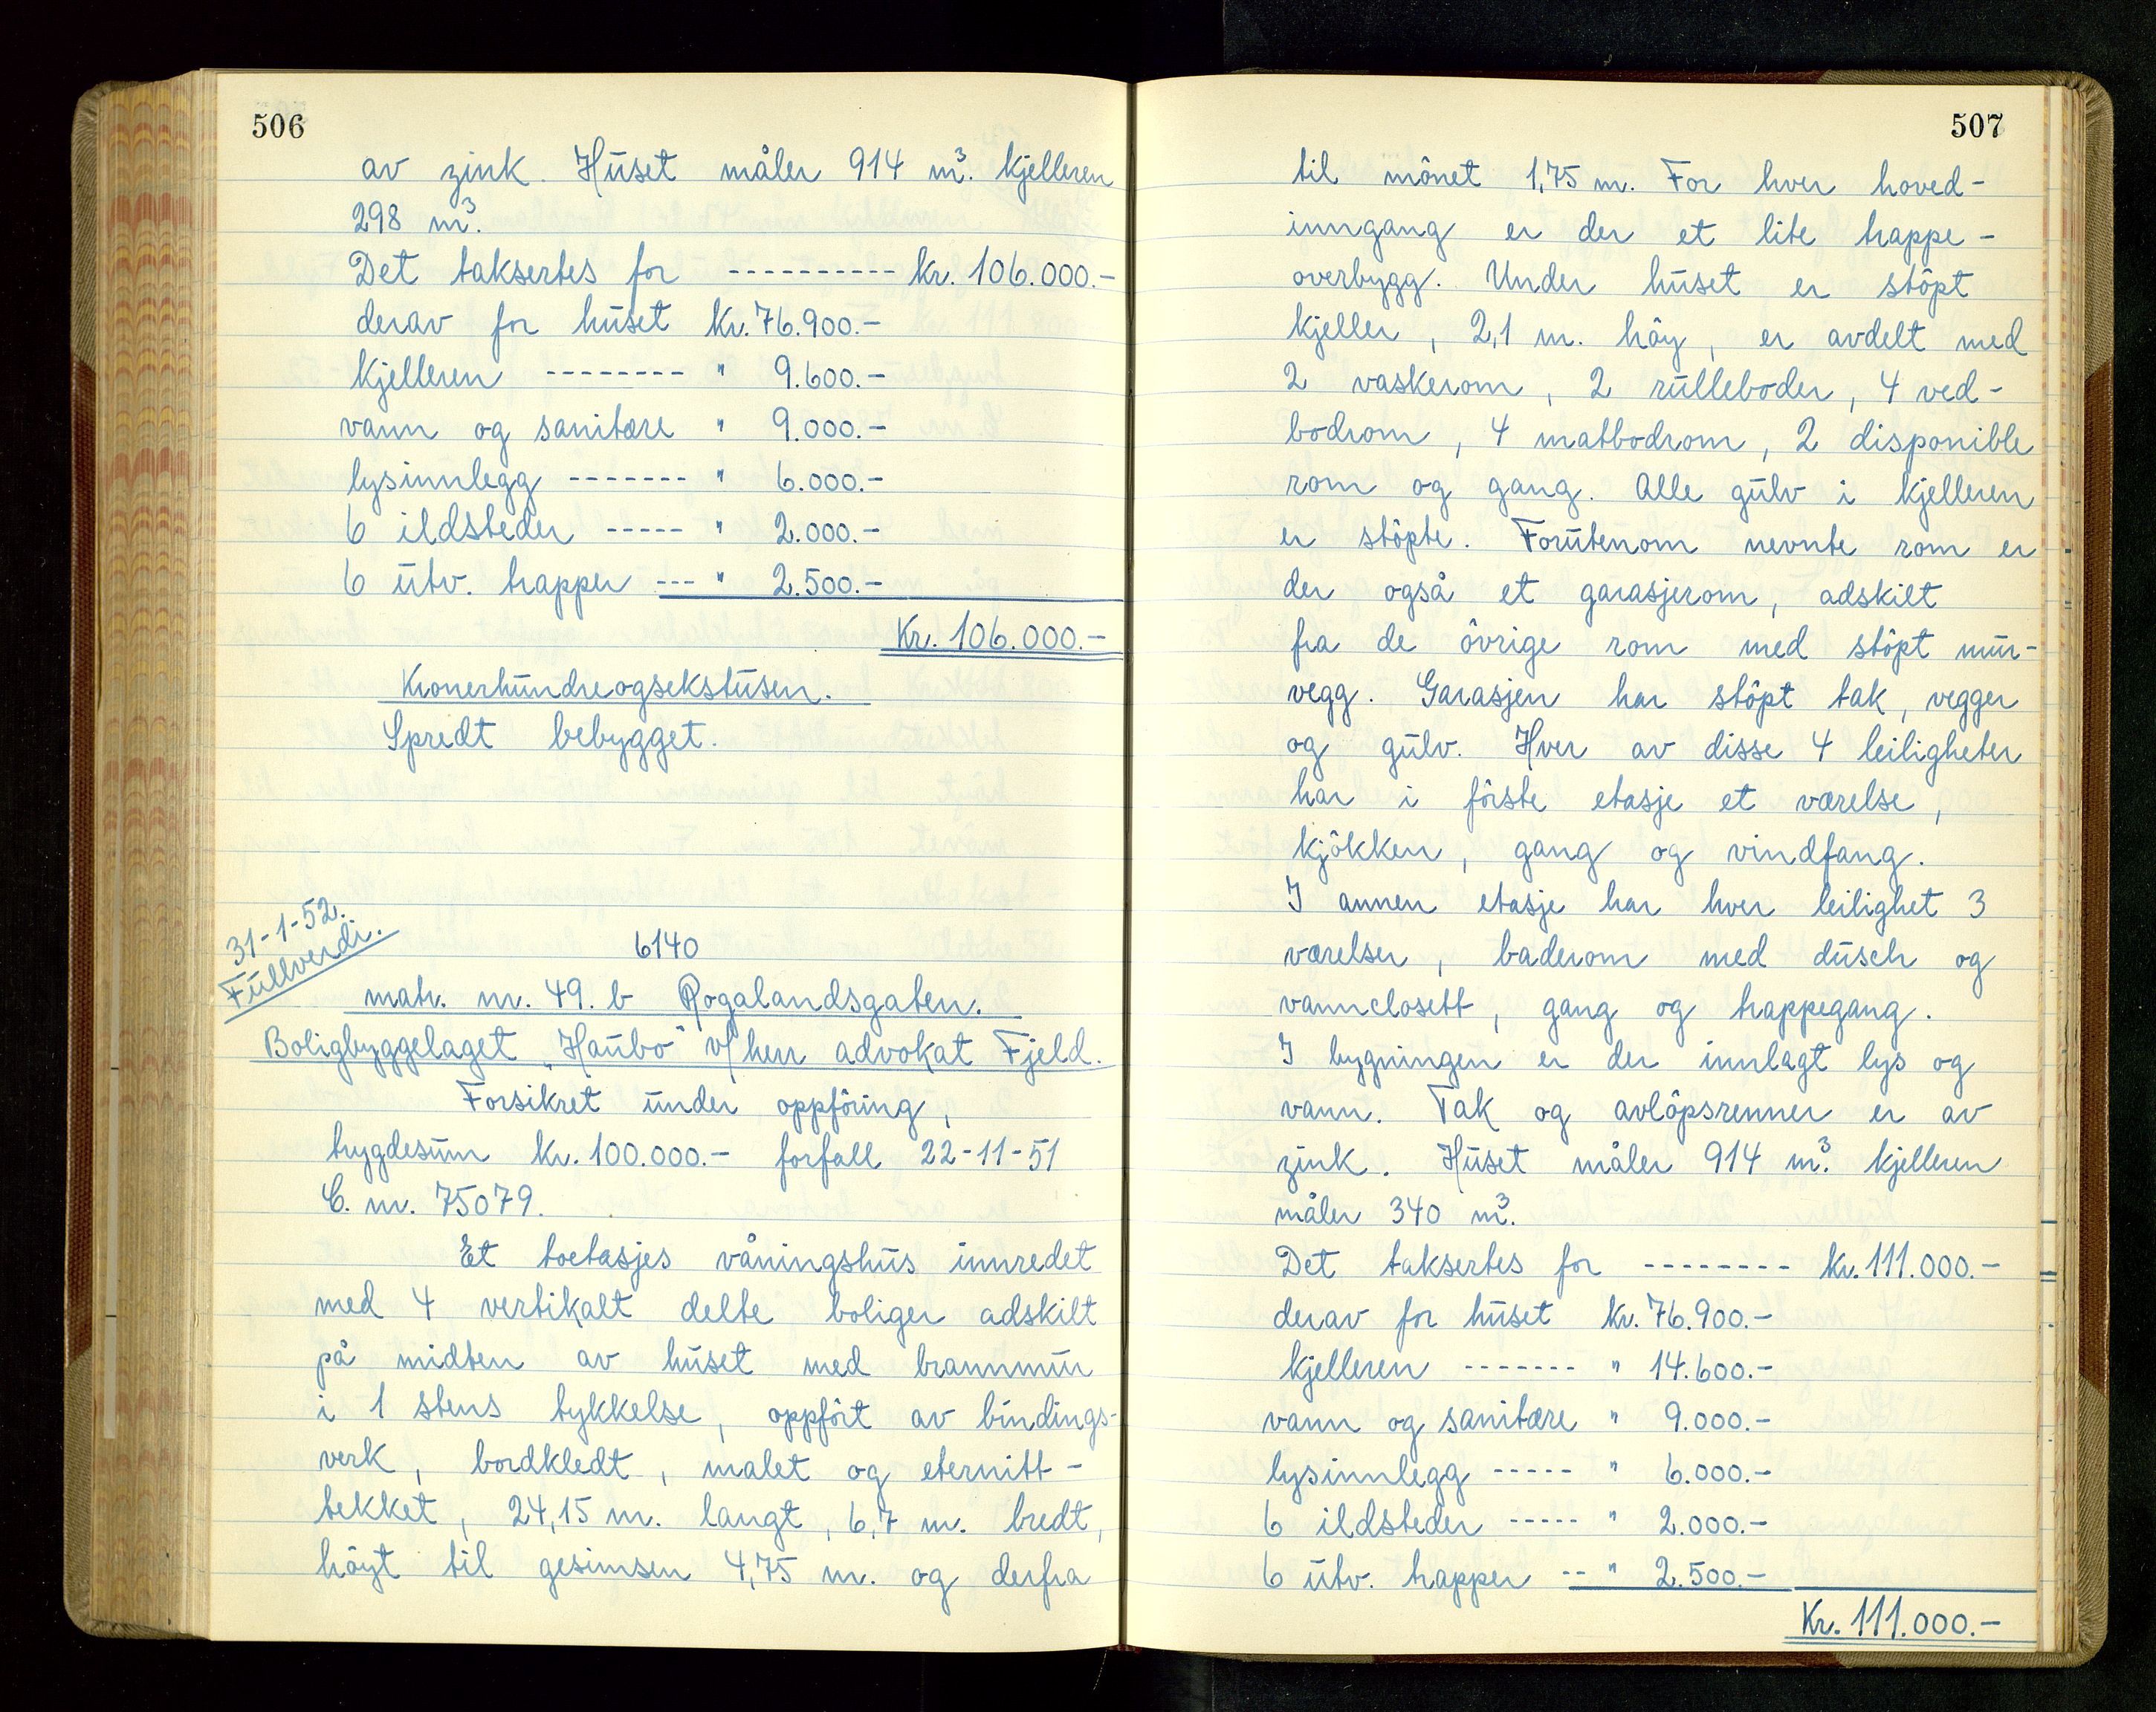 506
av zink. Huset måler 914 m³. kjelleren
298 m³.
Det taksertes for ---------- kr. 106.000.-
derav for huset Kr. 76.900.-
kjelleren -------- " 9.600.-
vann og sanitære " 9.000.-
lysinnlegg ------- " 6.000.-
6 ildsteder ----- " 2.000.-
6 utv. trapper --- " 2.500.-
Kr. 106.000.-
Kronerhundreogsekstusen.
Spredt bebygget.
31-1-52.
Fullverdi.
6140
matr. nr. 49. b Rogalandsgaten.
Boligbyggelaget „Haubo" v/ herr advokat Fjeld.
Forsikret under oppföring,
trygdesum Kr. 100.000.- forfall 22-11-51
C. nr. 75079.
Et toetasjes våningshus innredet
med 4 vertikalt delte boliger adskilt
på midten av huset med brannmur
i 1 stens tykkelse, oppfört av bindings-
verk, bordkledt, malet og eternitt-
tekket, 24,15 m. langt, 6,7 m. bredt,
höyt til gesimsen 4,75 m. og derfra
507
til mönet 1,75 m. For hver hoved-
inngang er der et lite trappe-
overbygg. Under huset er stöpt
kjeller, 2,1 m. höy, er avdelt med
2 vaskerom, 2 rulleboder, 4 ved-
bodrom, 4 matbodrom, 2 disponible
rom og gang. Alle gulv i kjelleren
er stöpte. Forutenom nevnte rom er
der også et garasjerom, adskilt
fra de övrige rom med stöpt mur-
vegg. Garasjen har stöpt tak, vegger
og gulv. Hver av disse 4 leiligheter
har i förste etasje et værelse,
kjökken, gang og vindfang.
I annen etasje har hver leilighet 3
værelser, baderom med dusch og
vannclosett, gang og trappegang.
I bygningen er der innlagt lys og
vann. Tak og avlöpsrenner er av
zink. Huset måler 914 m³. kjelleren
måler 340 m³.
Det taksertes for -------- kr. 111.000.-
derav for huset kr. 76.900.-
kjelleren ------- " 14.600.-
vann og sanitære " 9.000.-
lysinnlegg ----- " 6.000.-
6 ildsteder ----- " 2.000.-
6 utv. trapper -- " 2.500.-
Kr. 111.000.-